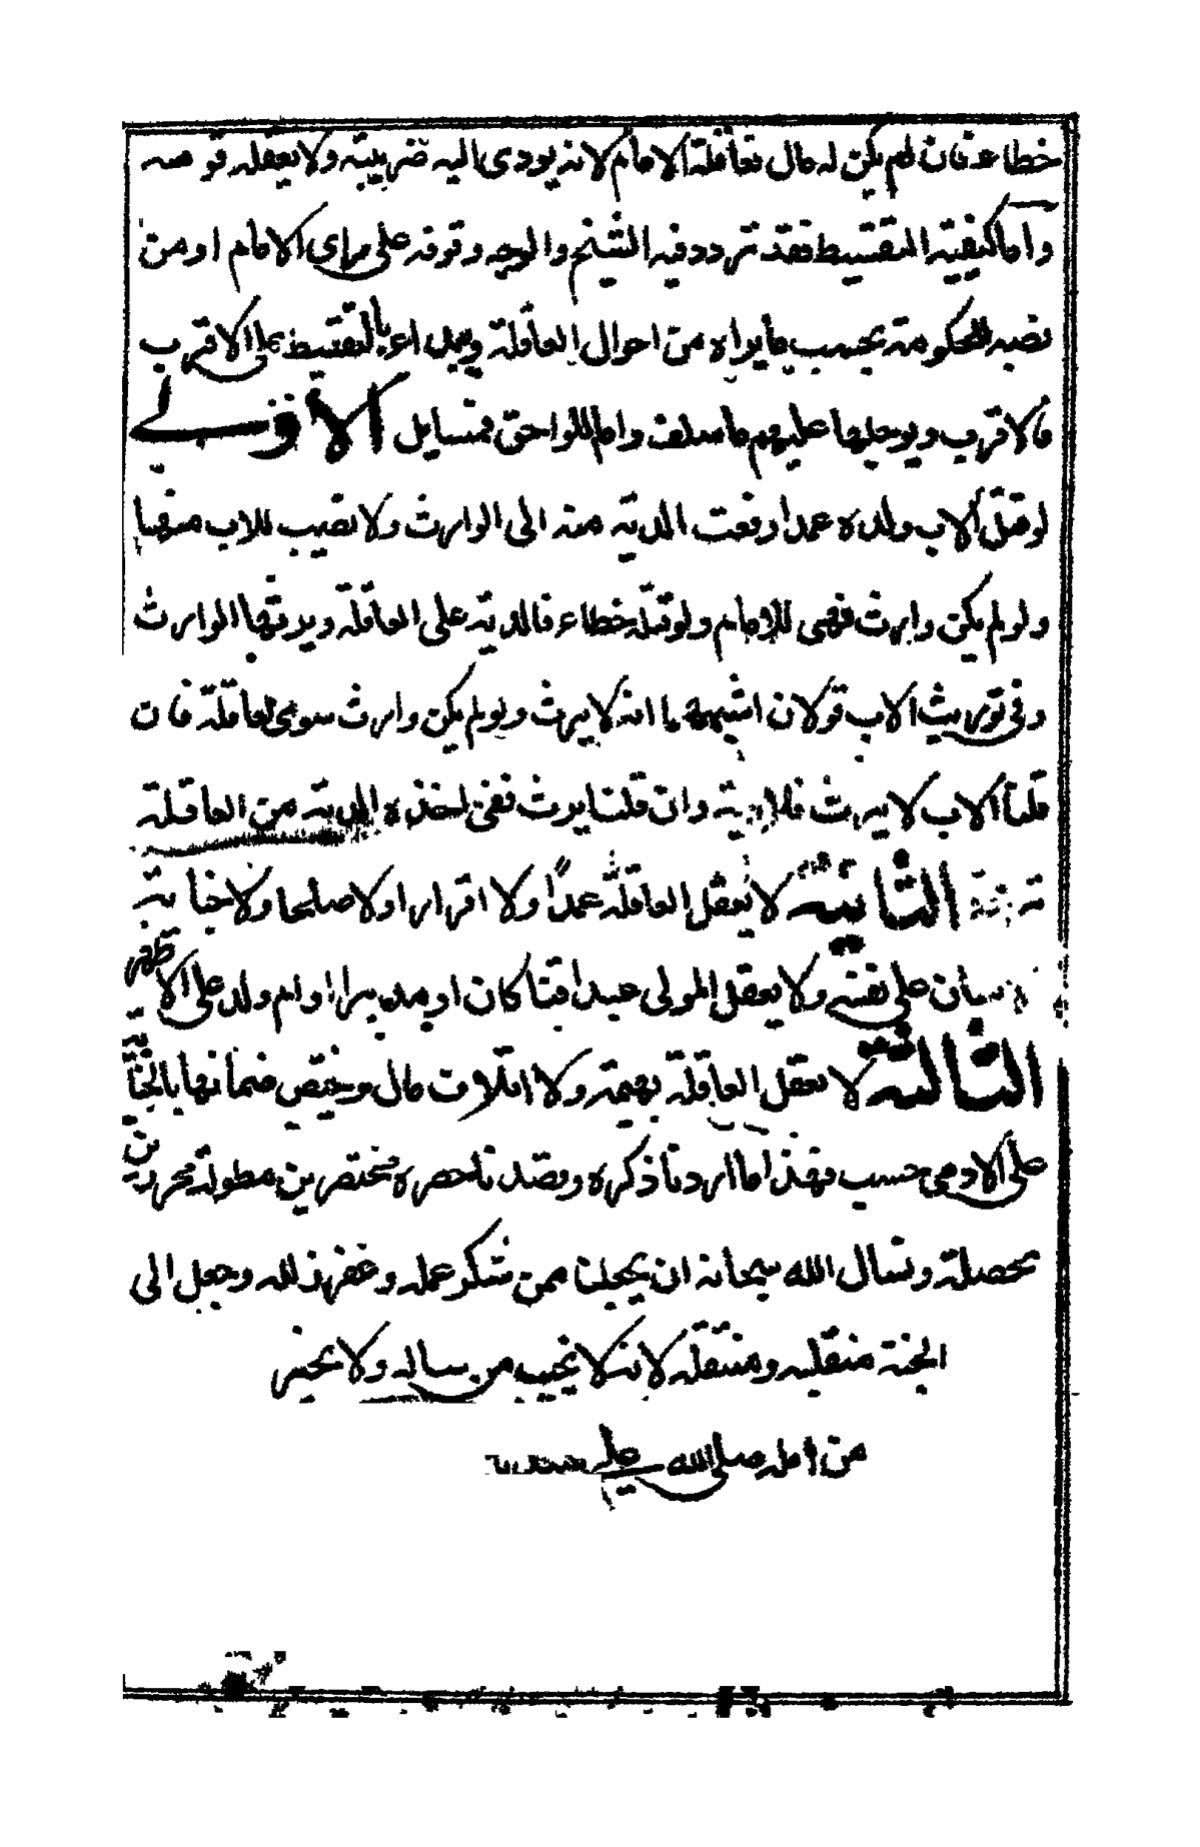 خطاء فان لم يكن له مال فعاقلته الامام لانه يودى اليه ضريبته ولا يعقله قومه
واما كيفيته التقسيط فقد تردد فيه الشيخ والوجه وقوفه على راى الامام او من
نصبه للحكومة بحسب ما يراه من احوال العاقلة ويبداء بالتقسيط على الاقرب
فالاقرب ويوجلها عليهم ما سلف واما اللواحق فمسايل الاولى
لو قتل الاب ولده عمدا دفعت الدية منه الى الوارث ولا نصيب للاب منها
ولو لم يكن وارث فهى للامام ولو قتله خطاء فالدية على العاقلة ويرثها الوارث
وفى توريث الاب قولان اشبههما انه لا يرث ولو لم يكن وارث سوى العاقلة فان
قلنا الاب لا يرث فلا دية وان قلنا يرث ففى اخذه الدية من العاقلة
الثانية لا يعقل العاقلة عمدًا ولا اقرارا ولا صلحا ولا جناية
انسان على نفسه ولا يعقل المولى عبدا قنا كان او مدبرا او ام ولد على الاظهر
الثالثة لا يعقل العاقلة بهيمة ولا اتلاف مال ويختص ضمانها بالجناية
على الادمى حسب فهذا ما اردنا ذكره وقصدنا حصره مختصرين مطوله مجردين
محصله ونسال الله سبحانه ان يجعلنا ممن شكر عمله وغفر زلله وجعل الى
الجنة منقلبه ومنتقله لانه لا يخيب من ساله ولا يخسر
من امله صلى الله عليه